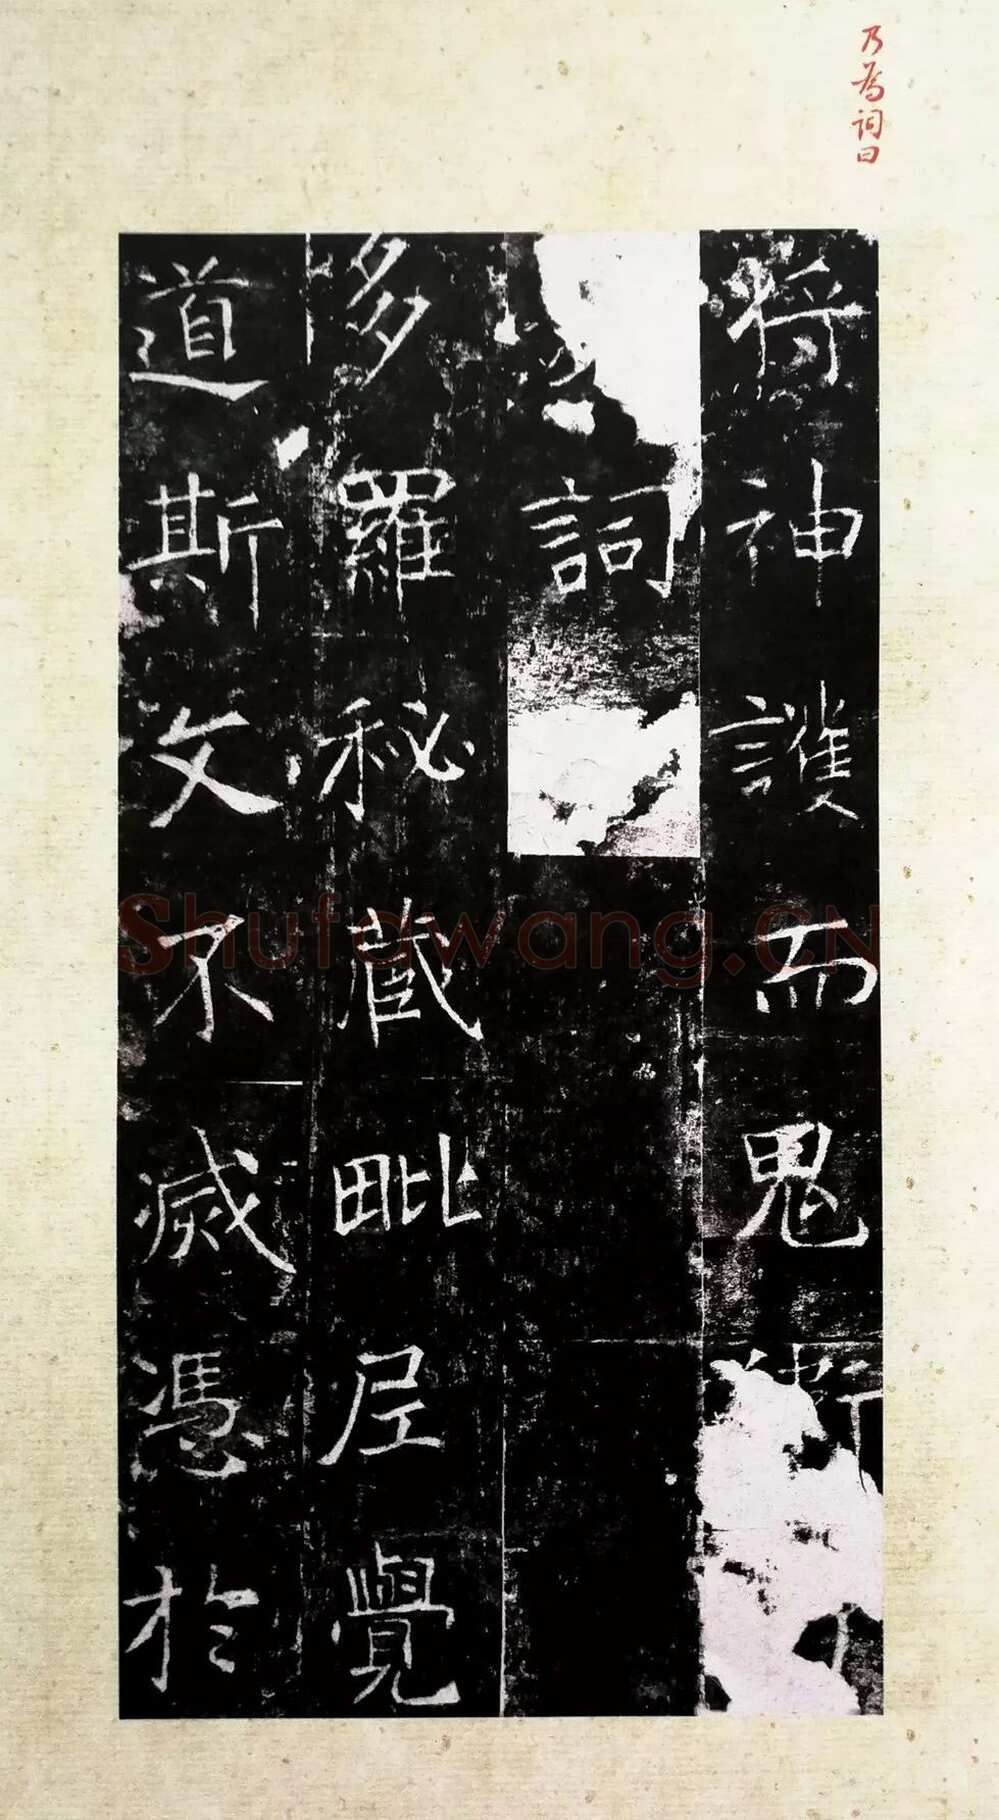 乃為詞曰
将神護而鬼衛
詞
多羅秘蔵毗尼覺
道斯文不滅憑於
Shufawang.CN